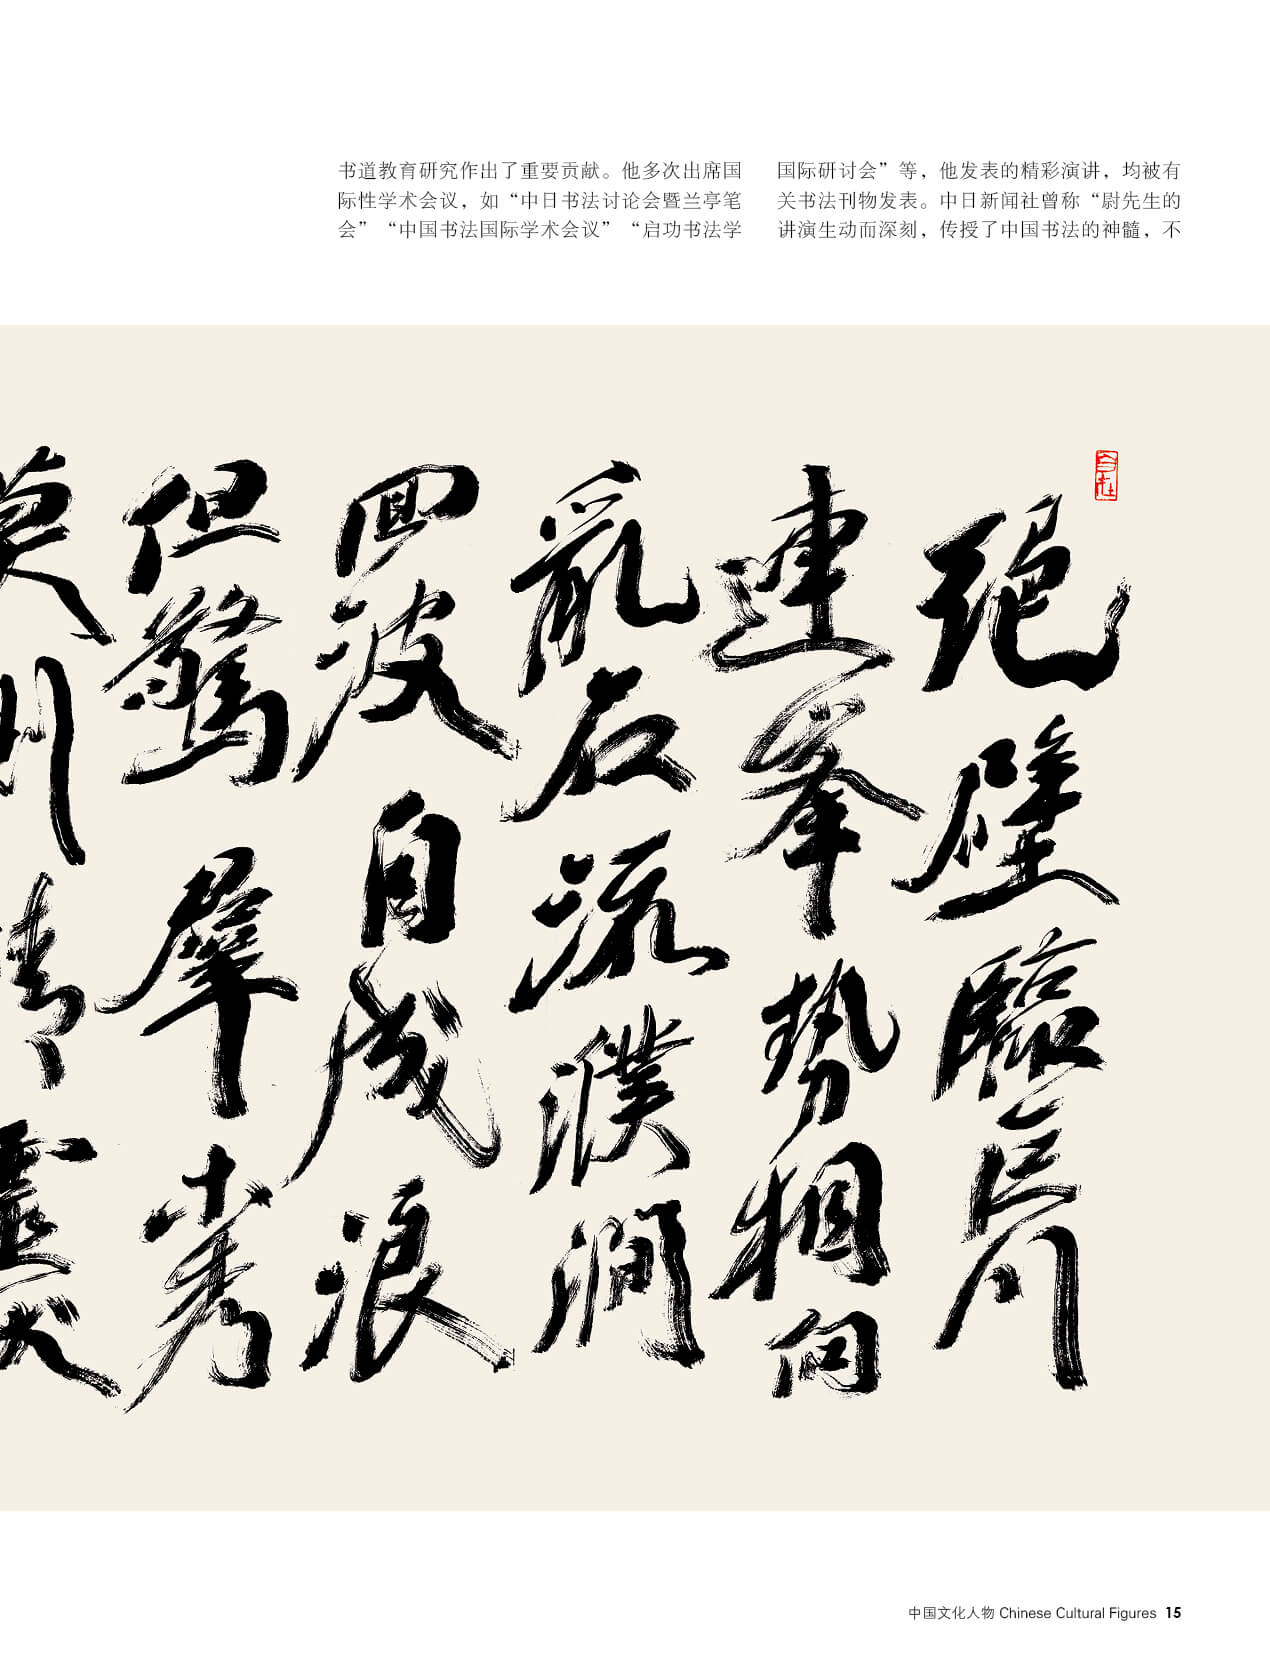 书道教育研究作出了重要贡献。他多次出席国
际性学术会议，如“中日书法讨论会暨兰亭笔
会”“中国书法国际学术会议”“启功书法学
国际研讨会”等，他发表的精彩演讲，均被有
关书法刊物发表。中日新闻社曾称“尉先生的
讲演生动而深刻，传授了中国书法的神髓，不
絕壁臨巨川
連峯勢相向
亂石流濮澗
回波自成浪
但驚羣木秀
莫
中国文化人物 Chinese Cultural Figures 15